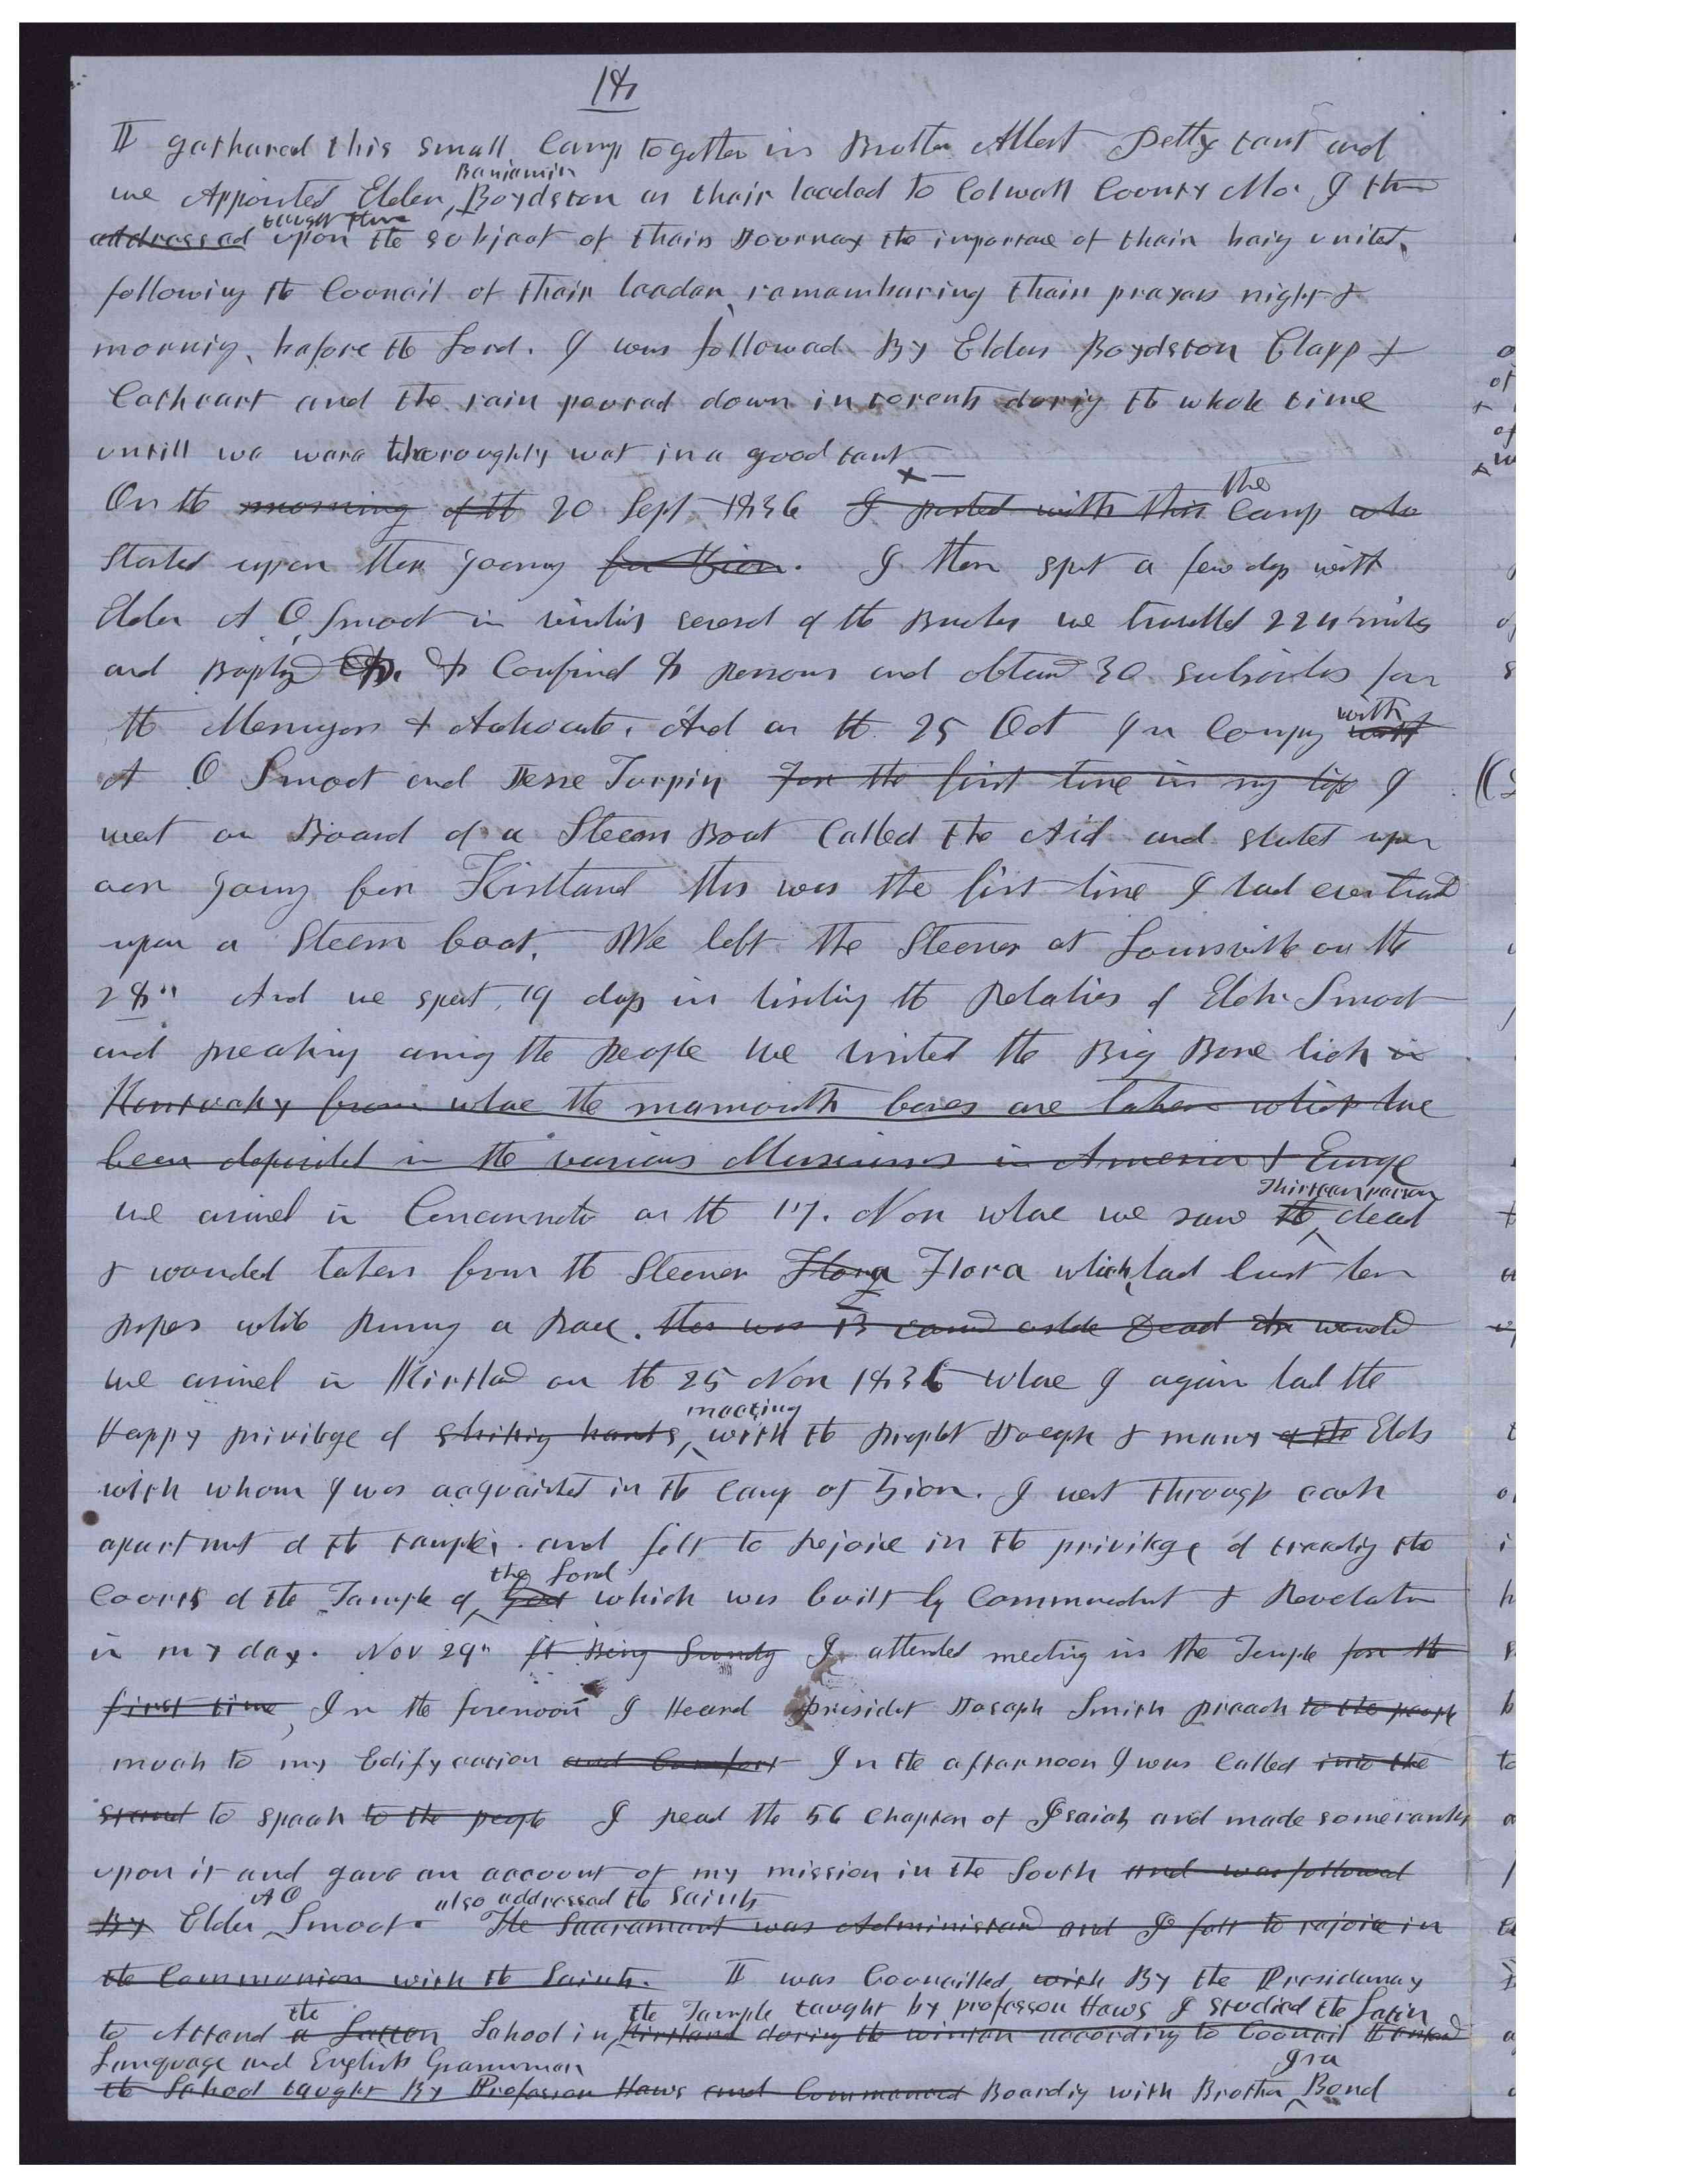 18
I gathered this small Camp together in Brother Albert Petty tent and
Banjamin
we Appointed Elder Boydston as thair leaded to Colwell County Mo. I then
taught them
addressed upon the subject of thair Journey the importace of thair baig united,
following the Council of thair leader, remembering thair prayers night &
mornig, before the Lord. I was followed By Elders Boydston Clapp &
Cathcart and the rain poured down in torents durig the whole time
untill we ware thoroughly wet in a good tent
On the morning of the 20 Sept 1836 I parted with this the Camp who
Started upon ther Jorny for Zion. I then spet a few days with
Elder A O Smoot in visitig several of the Branches we travelled 224 miles
and Baptizd & Confirmd 8 persons and obtaind 30 subscribes for
the Messenger & Advocate. And on the 25 Oct In Compny with
A O Smoot and Jesse Turpin for the first time in my life I
went on Board of a Steem Boat Called the Aid and stated upon
our Jorny for Kirtland this was the first time I had ever travd
upon a Steem boat. We left the Steemer at Louisville on the
28" And we spent 19 days in visitig the Relatives of Elder Smoot
and preaching amig the People We visited the Big Bone lick in
Kentucky from whare the mammoth bones are taken which have
been deposited in the various Museums in America & Europe
Thirteen person
we arived in Cincinnati on the 17. Nov whare we saw the dead
& wounded taken from the Steemer Flora Flora which had bust her
pipes while Runing a Race. ther was 13 carid ashore Dead the wounded
we arived in Kirtlad on the 25 Nov 1836 whare I again had the
meeting
Happy privilege of shaking hands, with the Prophet Joseph & many of the Elds
with whom I was acquainted in the Camp of Zion. I went through each
apartmnt of the temple. and felt to Rejoice in the privilege of treadig the
the Lord
Courts of the Temple of God which was built by Commandmet & Revelation
in my day. Nov 29" it Being Sundy I attended meetig in the Temple for the
first time, In the forenoon I Heard president Joseph Smith preach to the people
much to my Edifycation and Comfort In the afternoon I was Called into the
stand to speak to the people I read the 56 Chapter of Isaiah and made some remarks
upon it and gave an account of my mission in the South and was followed
A O also addressed the Saints
By Elder Smoot. The Sacrament was Administerd and I felt to rejoice in
the Communion with the Saints. I was Councilled with By the Presidency
the the Temple taught by professor Haws I studied the Latin
to Attend a Latten School in Kirtland during the winter according to Council
Language and English Grammar gra
the School taught By Professor Haws and Commenced Boardig with Brother Bond